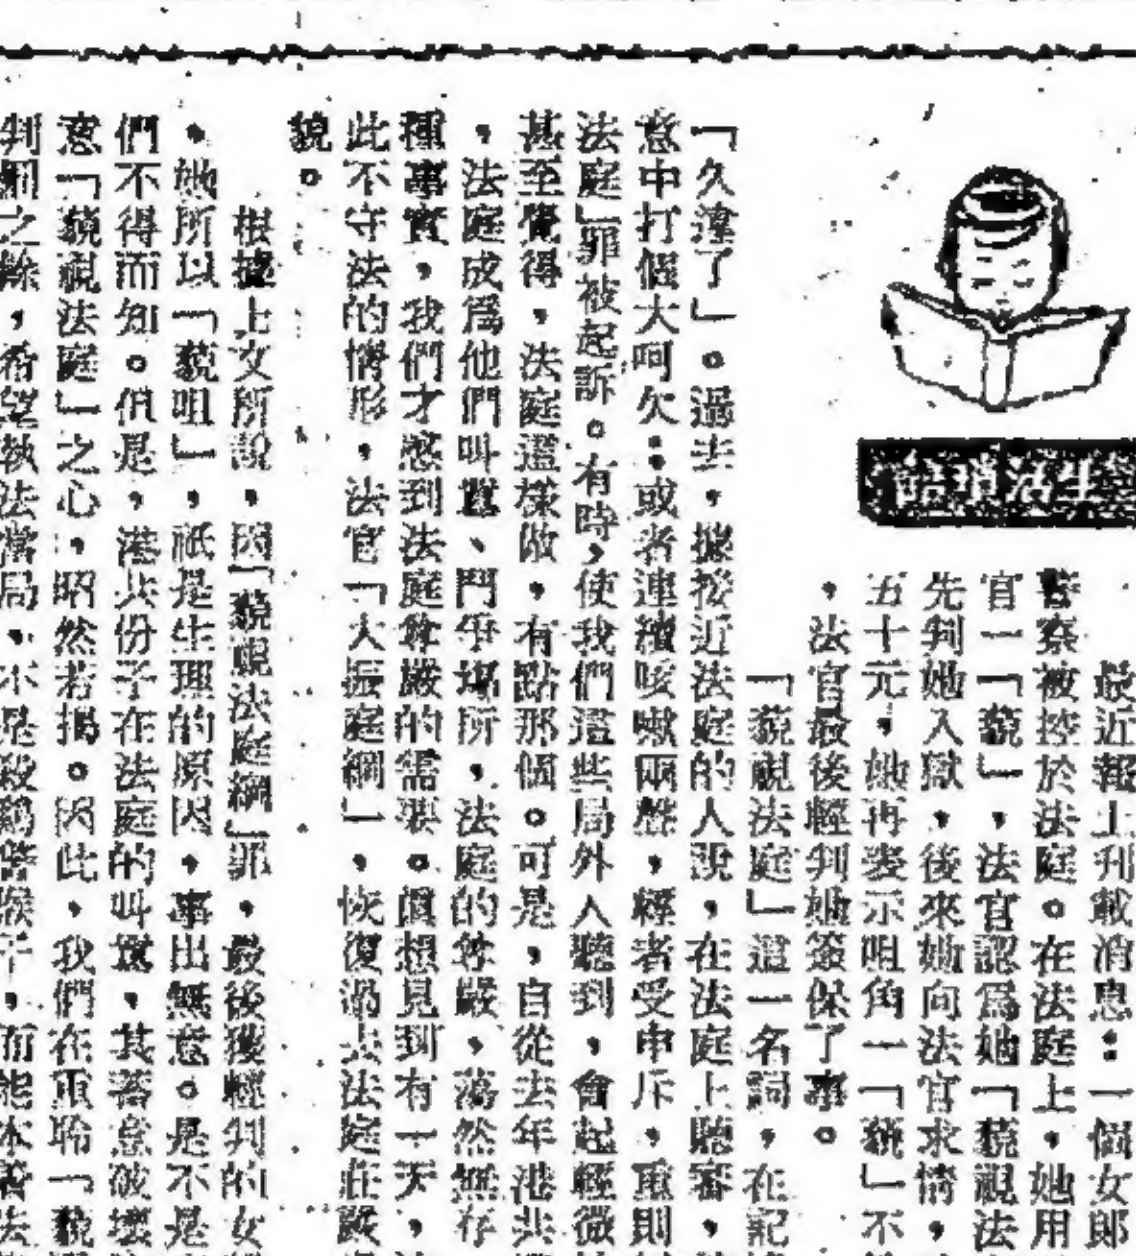 生活雜話
最近報上刊載消息：一個女郎
警察被控於法庭。在法庭上，她用
官一「藐」，法官認爲她「藐視法
先判她入獄，後來她向法官求情，
五十元，她再表示咀角一「藐」不
，法官最後輕判她簽保了事。
「藐視法庭」這一名詞，在記
「久違了」。過去，據接近法庭的人說，在法庭上聽審，
意中打個大呵欠：或者連續咳嗽兩聲，輕者受申斥，重則
法庭」罪被起訴。有時，使我們這些局外人聽到，會起輕微
甚至覺得，法庭這樣做，有點那個。可是，自從去年港共
，法庭成爲他們叫囂、鬥爭塲所，法庭的尊嚴，蕩然無存
種事實，我們才感到法庭尊嚴的需要。眞想見到有一天，
此不守法的情形，法官「大振庭綱」，恢復過去法庭莊嚴
貌。
根據上文所說，因「藐視法庭綱」罪，最後獲輕判的女
，她所以「藐咀」，祇是生理的原因，事出無意。是不是
們不得而知。但是，港共份子在法庭的叫囂，其蓄意破壞
意「藐視法庭」之心，昭然若揭。因此，我們在重聆「藐
判詞之餘，希望執法當局，不是殺鷄警猴子，而能本着法